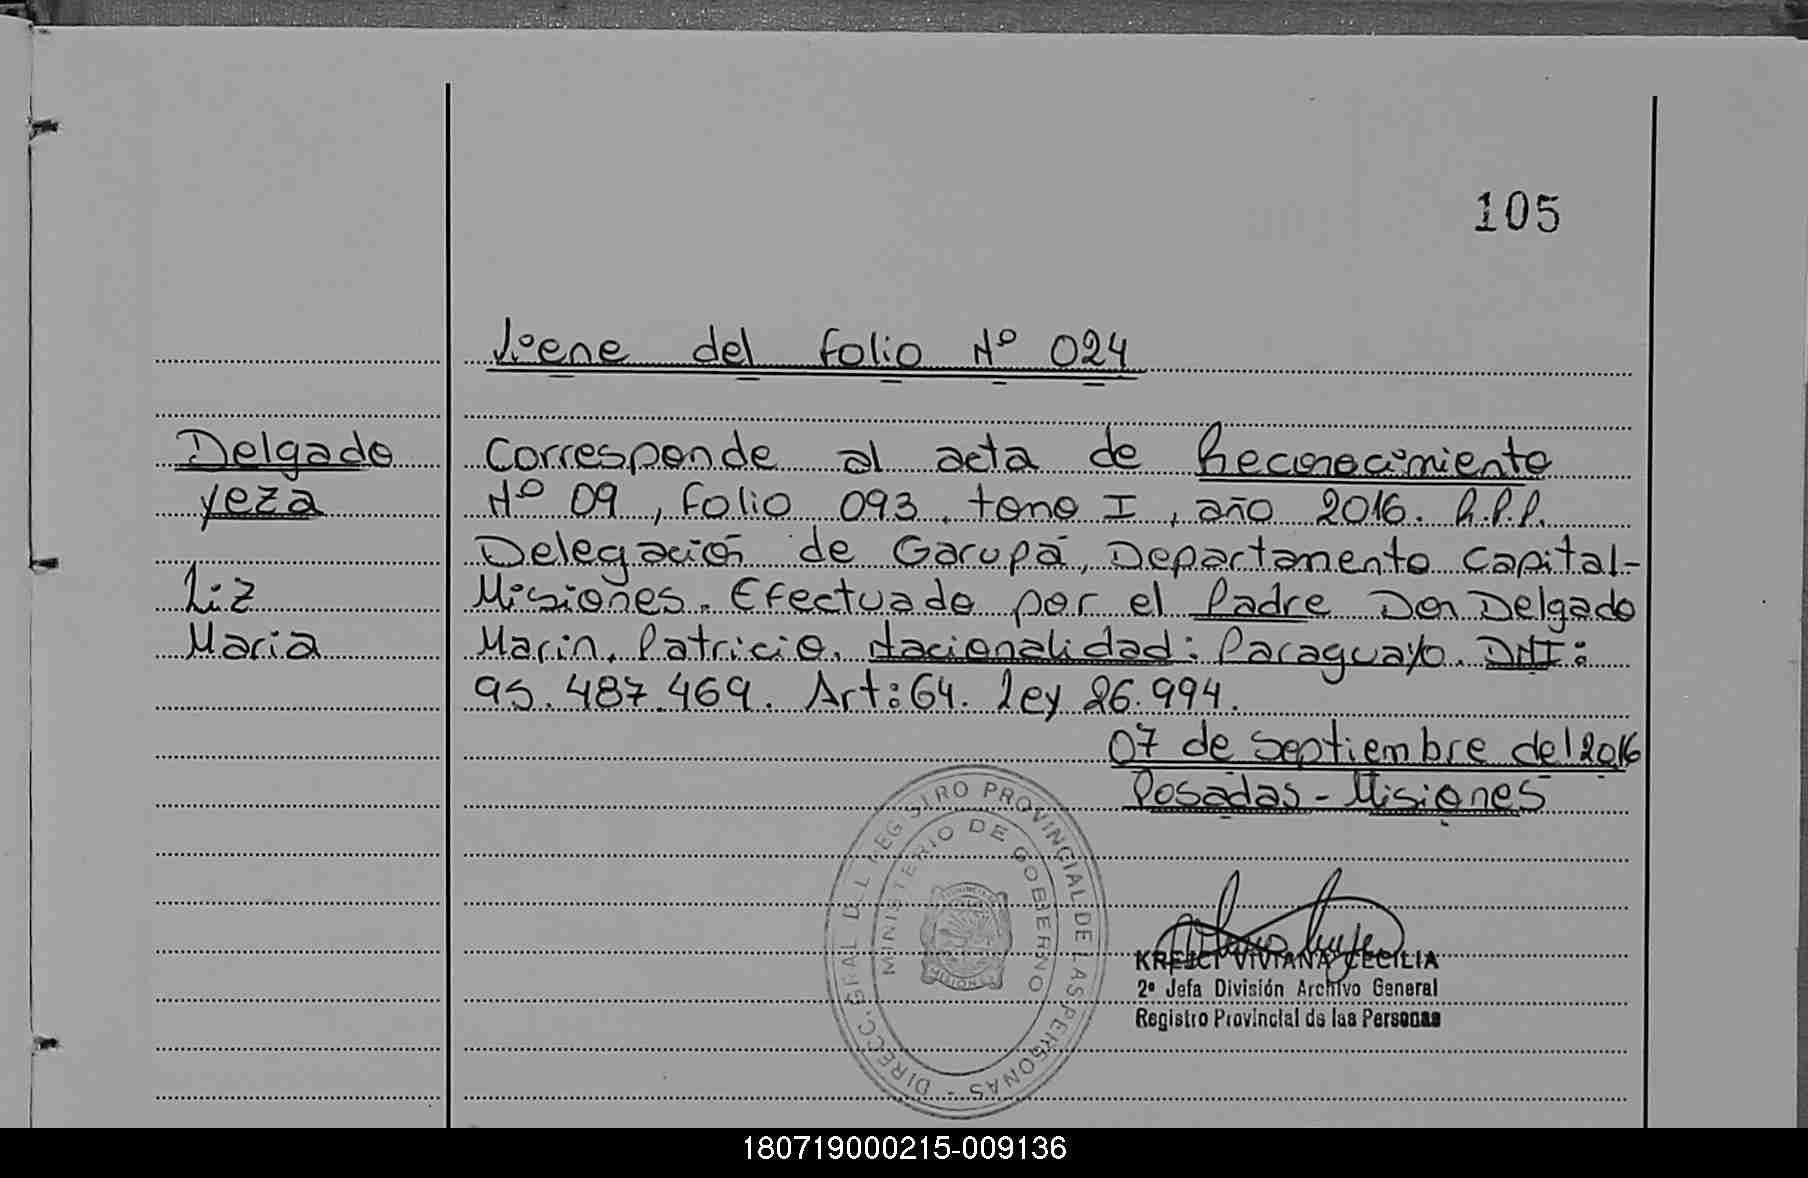 105
Viene del folio Nº 024
Delgado
Yeza
Liz
Maria
Corresponde al acta de Reconocimiento
Nº 09, Folio 093, tomo I, año 2016. R.P.P.
Delegación de Garupá, Departamento Capital-
Misiones. Efectuado por el Padre Don Delgado
Marin, Patricio. Nacionalidad: Paraguayo. DNI:
95.487.469. Art:64. Ley 26.994.
07 de septiembre del 2016
Posadas - Misiones
DIRECC. GRAL DEL REGISTRO PROVINCIAL DE LAS PERSONAS -
MINISTERIO DE GOBIERNO
MISIONES
KREJCI VIVIANA CECILIA
2ª Jefa División Archivo General
Registro Provincial de las Personas
180719000215-009136